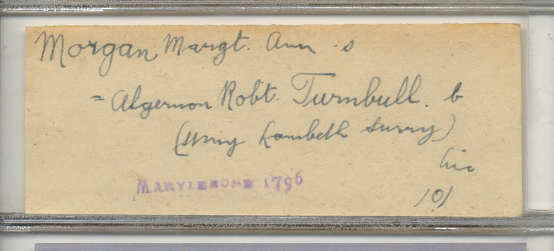 Morgan Margt. Ann s
= Algernon Robt. Turnbull. b
(St Mary Lambeth Surry)
lic
101
MARYLEBONE 1796